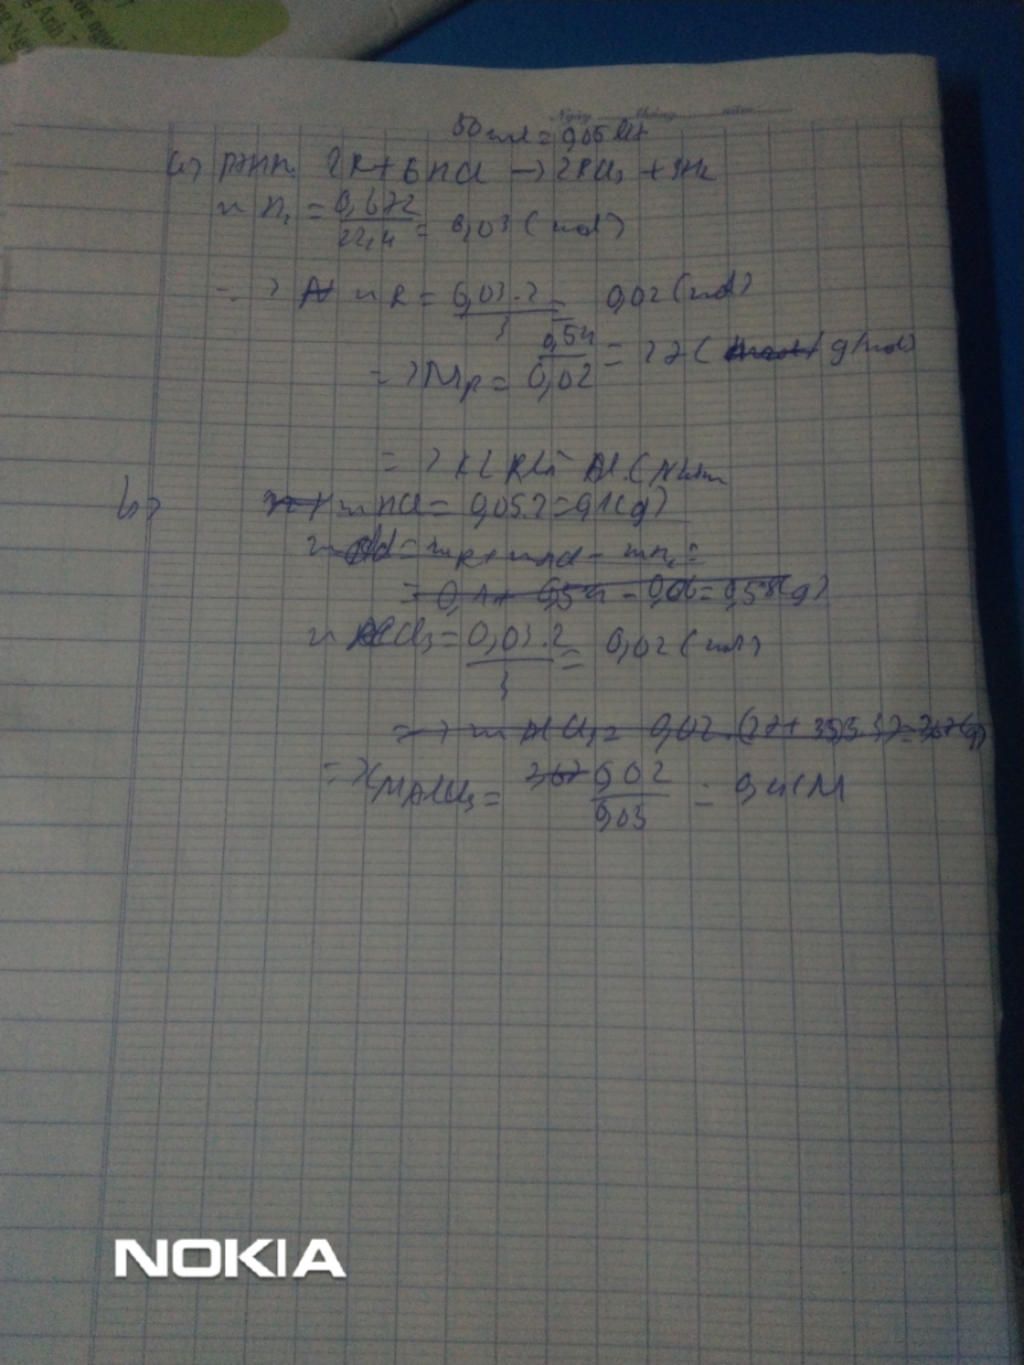 Ngày tháng năm
50 ml = 0,05 lít
a, PTHH: 2R + 6HCl → 2RCl₃ + 3H₂
n H₂ = 0,672 / 22,4 = 0,03 (mol)
=> n R = 0,03.2 / 3 = 0,02 (mol)
=> M_R = 0,54 / 0,02 = 27 ( g/mol)
=> KL R là Al (Nhôm
b, m HCl = 0,05.2 = 0,1 (g)
= m_R + m HCl - m H₂ =
= 0,1 + 0,54 - 0,06 = 0,58 (g)
n AlCl₃ = 0,03.2 / 3 = 0,02 (mol)
=> m AlCl₃ = 0,02.(27 + 35,5.3) = 2,67 (g)
=> C_M AlCl₃ = 2,67 0,02 / 0,05 = 0,4 (M
NOKIA